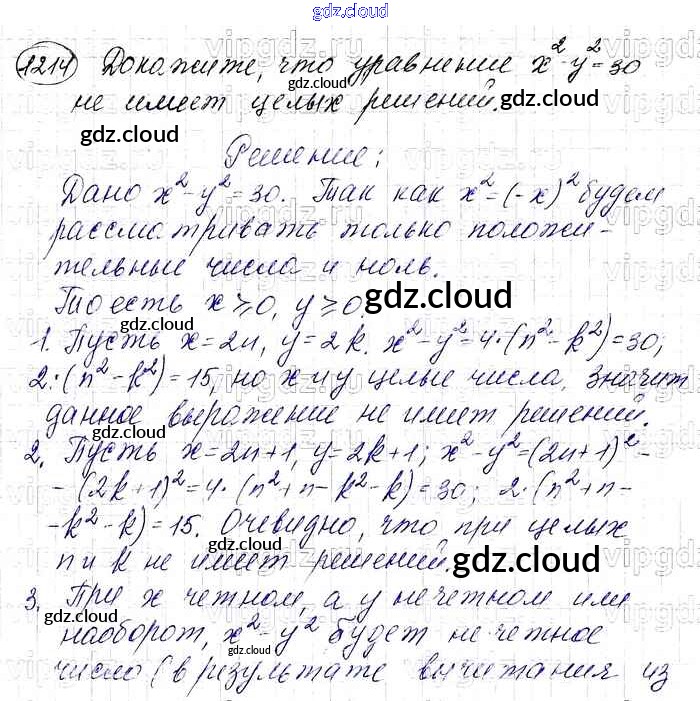 gdz.cloud
1214 Докажите, что уравнение x²-y²=30
gdz.cloud
не имеет целых решений.
gdz.cloud
Решение:
gdz.cloud
Дано x²-y²=30. Так как x²=(-x)² будем
рассматривать только положи-
тельные числа и ноль.
То есть x⩾0, y⩾0.
gdz.cloud
1. Пусть x=2n, y=2k. x²-y²=4·(n²-k²)=30;
2·(n²-k²)=15, но x и y целые числа, значит
данное выражение не имеет решений.
gdz.cloud
2. Пусть x=2n+1, y=2k+1; x²-y²=(2n+1)²-
-(2k+1)²=4·(n²+n-k²-k)=30; 2·(n²+n-
-k²-k)=15. Очевидно, что при целых
gdz.cloud
n и k не имеет решений.
gdz.cloud
3. При x четном, а y нечетном или
gdz.cloud
наоборот, x²-y² будет нечетное
число (в результате вычитания из
gdz.cloud
gdz.cloud